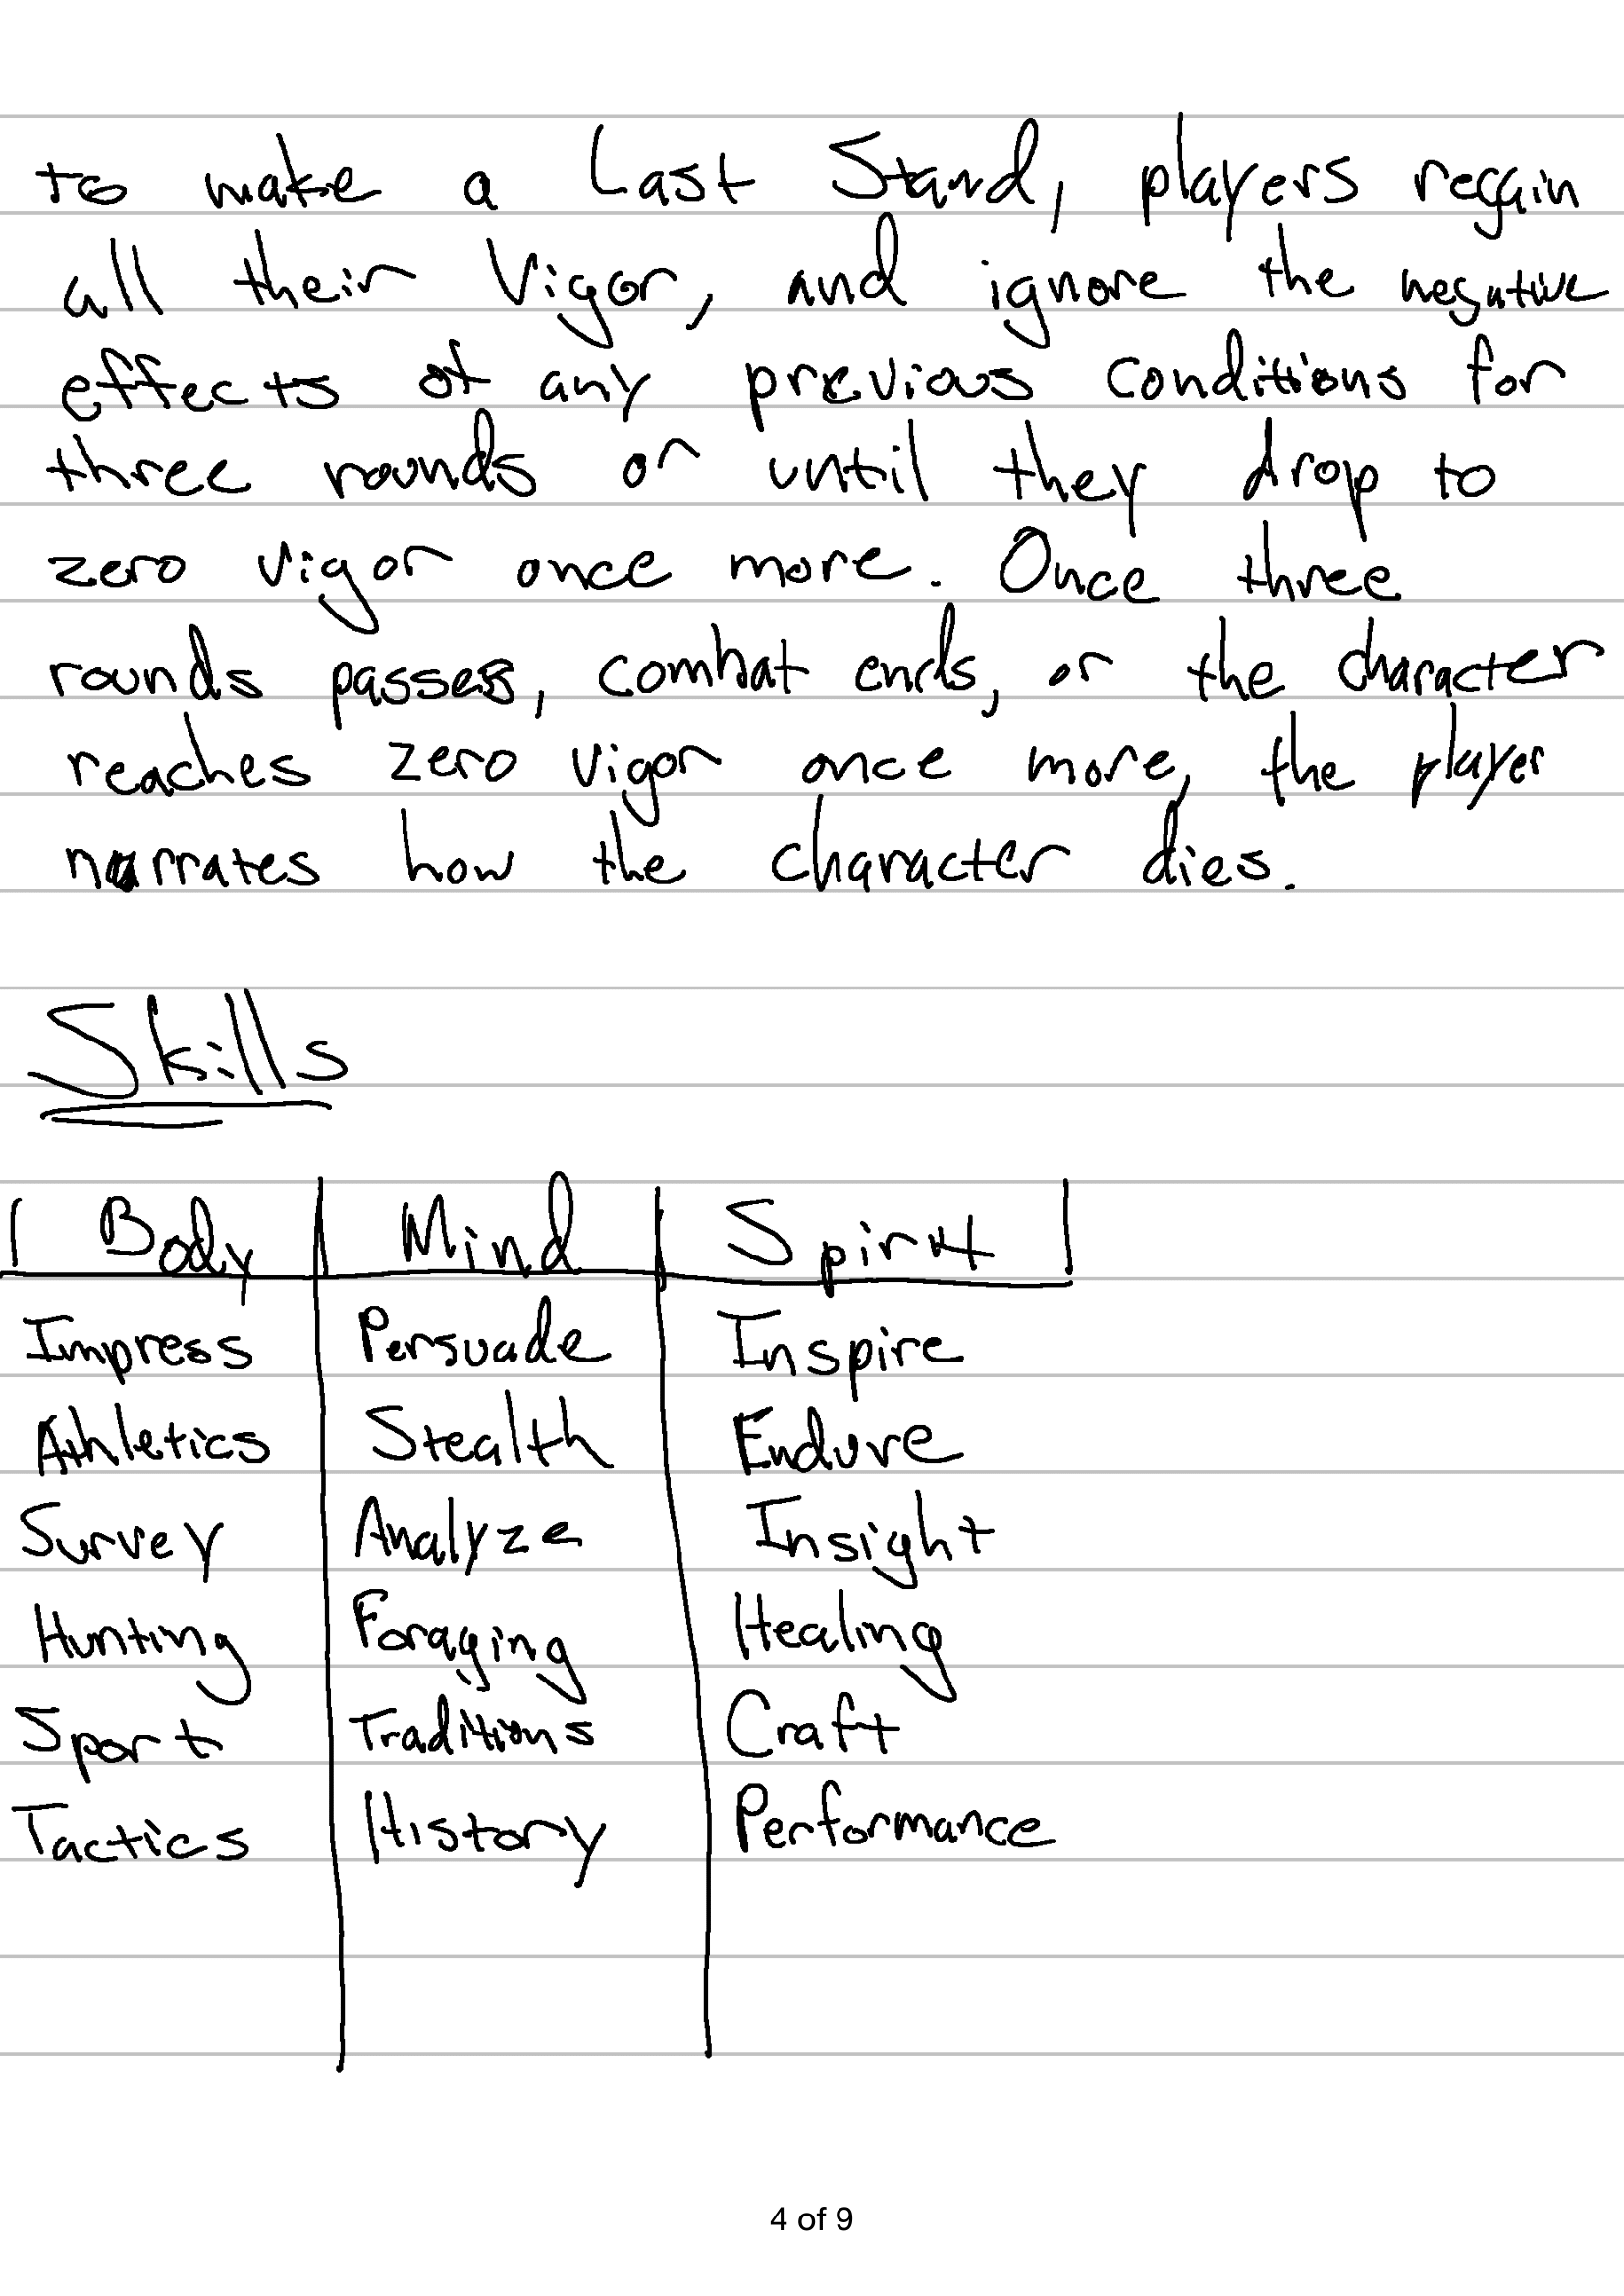 to make a Last Stand, players regain
all their Vigor, and ignore the negative
effects of any previous conditions for
three rounds or until they drop to
zero vigor once more. Once three
rounds passes, combat ends, or the character
reaches zero vigor once more, the player
narrates how the character dies.
Skills
Body Mind Spirit
Impress Persuade Inspire
Athletics Stealth Endure
Survey Analyze Insight
Hunting Foraging Healing
Sport Traditions Craft
Tactics History Performance
4 of 9